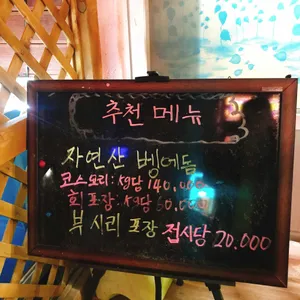 추천 메뉴
자연산 벵에돔
코스요리: kg당 140,000
회 포장: kg당 60,000
부시리 포장 접시당 20,000